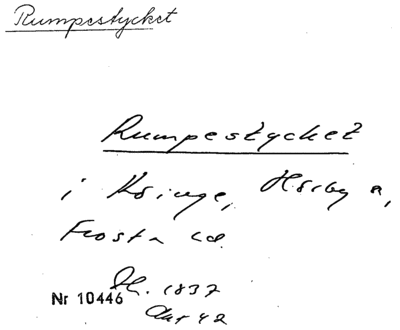 Rumpestycket
Rumpestycket
i Ksinge, Hörby s,
Frosta hd.
Nr 10446 Sk. 1837
Akt 42